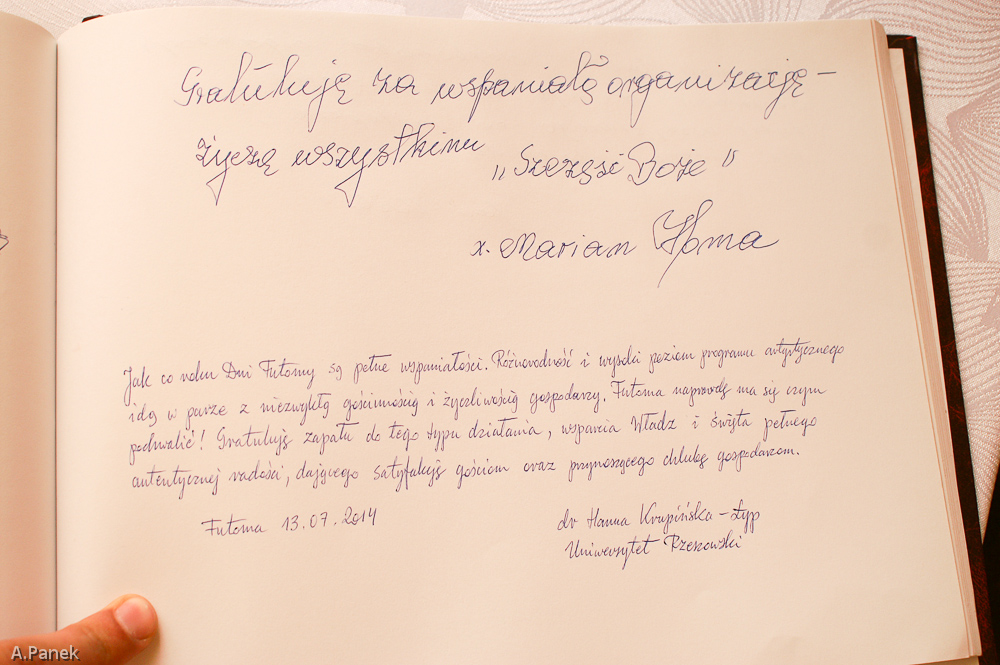 Gratuluję za wspaniałą organizację –
życzę wszystkim
„Szczęść Boże"
x. Marian Homa
Jak co roku Dni Futomy są pełne wspaniałości. Różnorodność i wysoki poziom programu artystycznego
idą w parze z niezwykłą gościnnością i życzliwością gospodarzy. Futoma naprawdę ma się czym
pochwalić! Gratuluję zapału do tego typu działania, wsparcia Władz i święta pełnego
autentycznej radości, dającego satysfakcję gościom oraz przynoszącego chlubę gospodarzom.
Futoma 13.07.2014
dr Hanna Krupińska – Łyp
Uniwersytet Rzeszowski
A.Panek